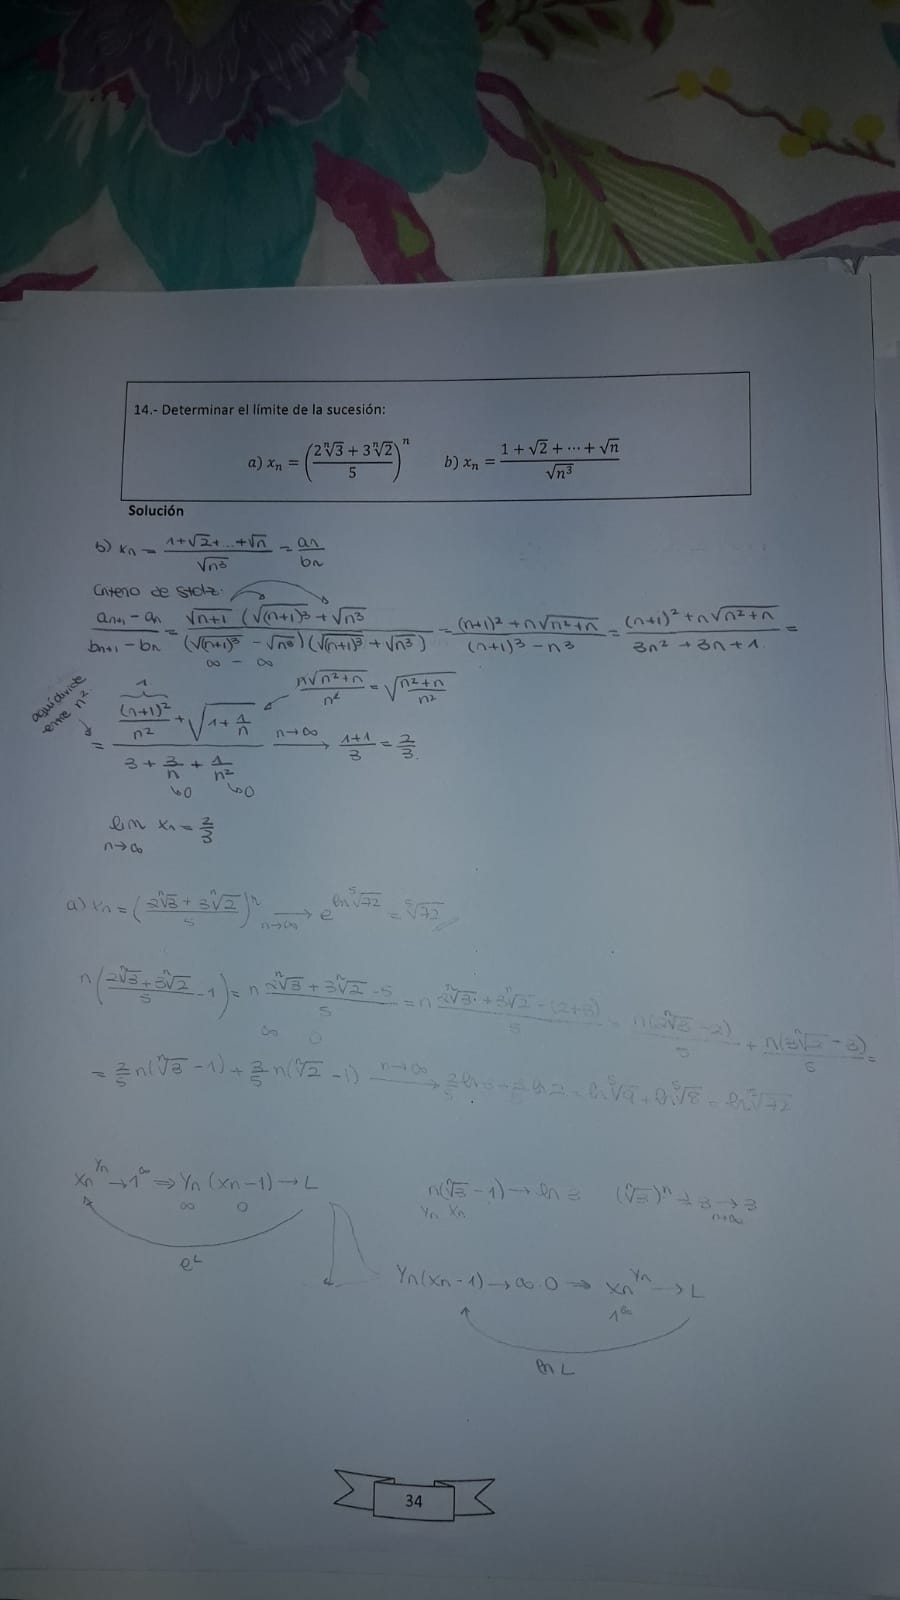 14.- Determinar el límite de la sucesión:
a) xₙ = ((2ⁿ√3 + 3ⁿ√2)/5)ⁿ b) xₙ = (1 + √2 + ⋯ + √n)/√n³
Solución
b) xₙ = (1+√2+...+√n)/√n³ = aₙ/bₙ
Criterio de Stolz:
(aₙ₊₁ - aₙ)/(bₙ₊₁ - bₙ) = √(n+1) (√(n+1)³ + √n³)/((√(n+1)³ - √n³)(√(n+1)³ + √n³)) = ((n+1)² + n√(n²+n))/((n+1)³ - n³) = ((n+1)² + n√(n²+n))/(3n² + 3n + 1) =
∞ - ∞
aquí divide entre n²
n√(n²+n)/n² = √((n²+n)/n²)
1
= ((n+1)²/n² + √(1+1/n))/(3 + 3/n + 1/n²) n→∞ → (1+1)/3 = 2/3.
↳0 ↳0
lim xₙ = 2/3
n→∞
a) xₙ = ((2ⁿ√3 + 3ⁿ√2)/5)ⁿ →n→∞ e^(ln ⁵√72) = ⁵√72
n((2ⁿ√3 + 3ⁿ√2)/5 - 1) = n (2ⁿ√3 + 3ⁿ√2 - 5)/5 = n (2ⁿ√3 + 3ⁿ√2 - (2+3))/5 = n(2ⁿ√3 - 2)/5 + n(3ⁿ√2 - 3)/5 =
∞ 0
= 2/5 n(ⁿ√3 - 1) + 3/5 n(ⁿ√2 - 1) n→∞ → 2/5 ln 3 + 3/5 ln 2 = ln ⁵√9 + ln ⁵√8 = ln ⁵√72
xₙ^yₙ → 1^∞ ⇒ yₙ (xₙ - 1) → L
∞ 0
e^L
n(ⁿ√3 - 1) → ln 3 (ⁿ√3)ⁿ = 3 → 3
yₙ xₙ n→∞
yₙ(xₙ - 1) → ∞·0 ⇒ xₙ^yₙ → L
1^∞
ln L
34